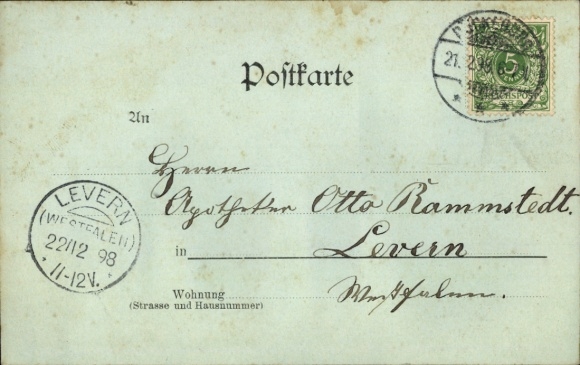 Postkarte
5
REICHSPOST
An
Herrn
Apotheker Otto Rammstedt.
LEVERN
(WESTFALEN)
22/12 98
11-12V.
in Levern
Wohnung
(Strasse und Hausnummer)
Westfalen.